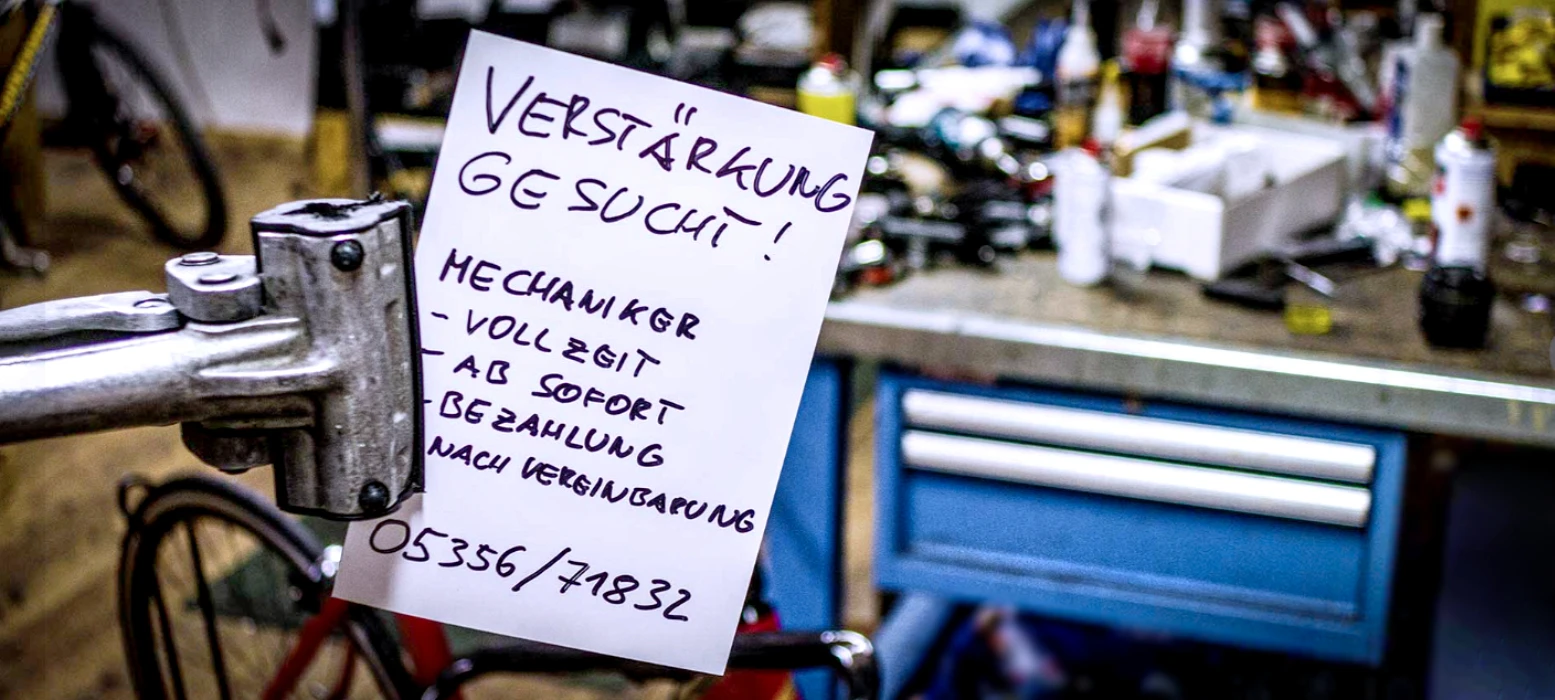 VERSTÄRKUNG
GESUCHT!
MECHANIKER
- VOLLZEIT
- AB SOFORT
- BEZAHLUNG
NACH VEREINBARUNG
05356/71832